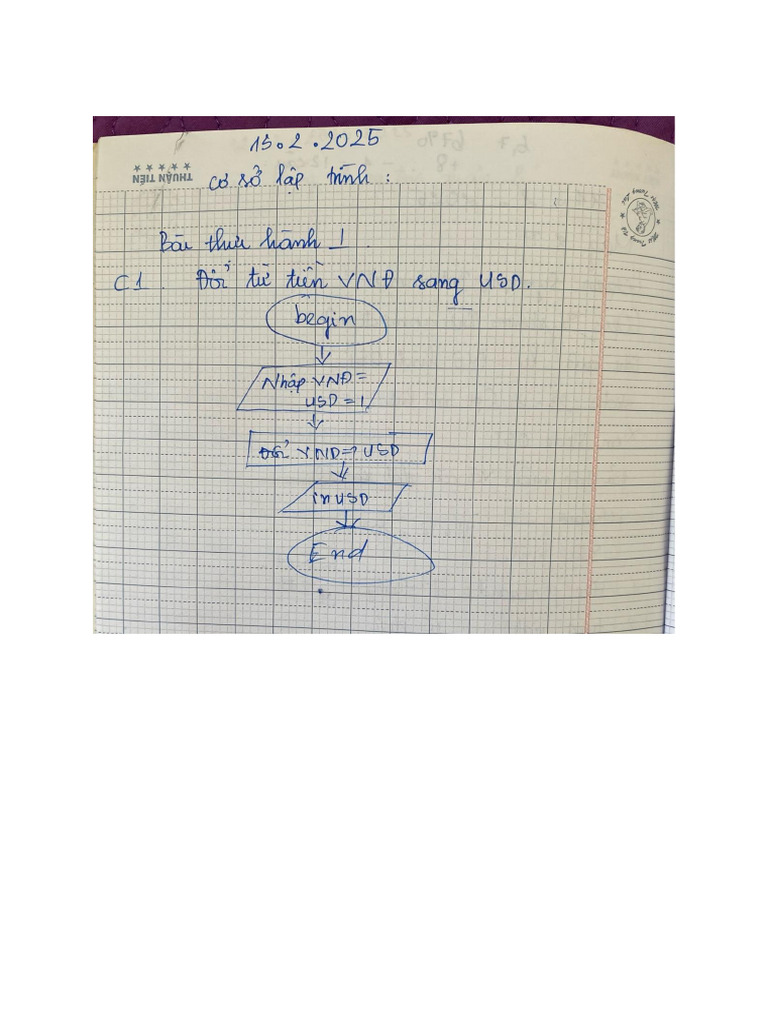 15.2.2025
THUẬN TIẾN
cơ sở lập trình :
Bài thực hành 1
C1. Đổi từ tiền VNĐ sang USD.
begin
Nhập VNĐ =
USD = 1
Đổi VND => USD
in USD
End